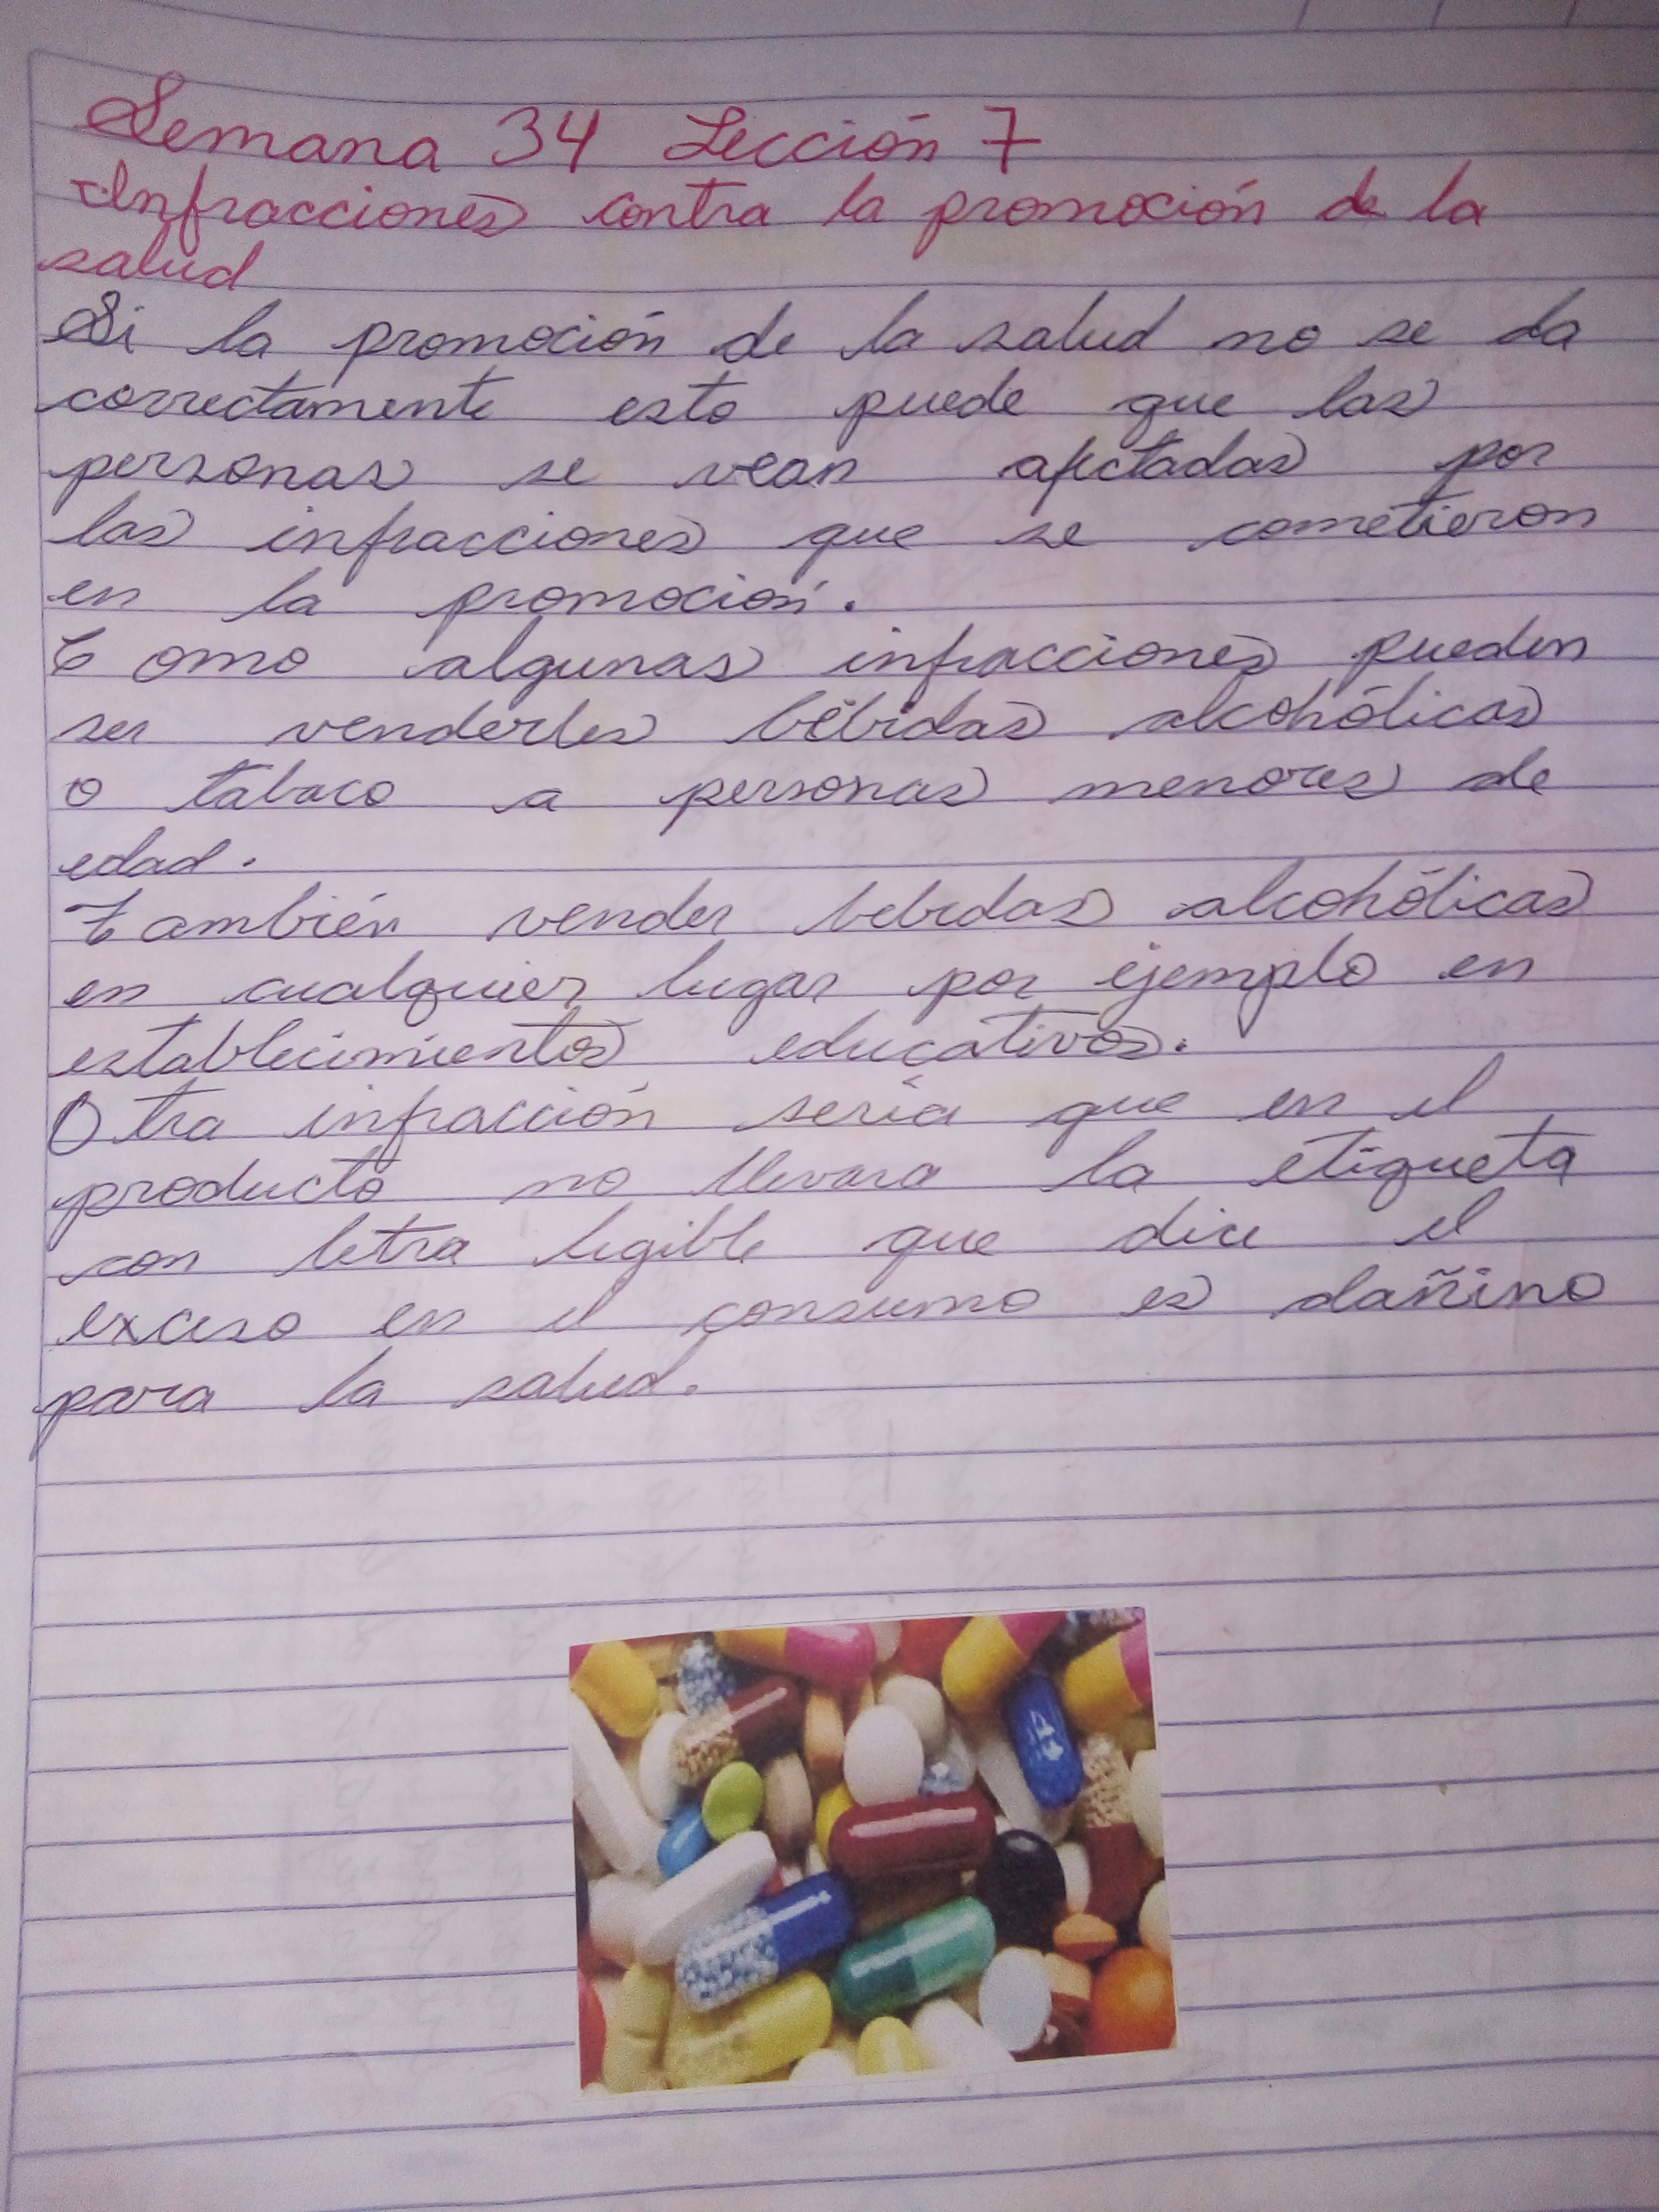 Semana 34 Lección 7
Infracciones contra la promoción de la
salud
Si la promoción de la salud no se da
correctamente esto puede que las
personas se vean afectadas por
las infracciones que se cometieron
en la promoción.
Como algunas infracciones pueden
ser venderles bebidas alcohólicas
o tabaco a personas menores de
edad.
También vender bebidas alcohólicas
en cualquier lugar por ejemplo en
establecimientos educativos.
Otra infracción sería que en el
producto no llevara la etiqueta
con letra legible que dice el
exceso en el consumo es dañino
para la salud.